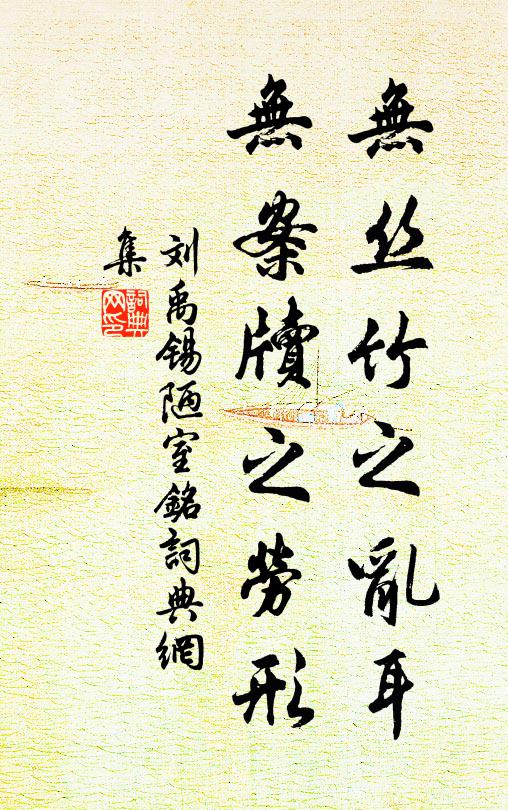 無丝竹之亂耳
無案牘之勞形
刘禹锡陋室銘詞典網
集
詞典網印